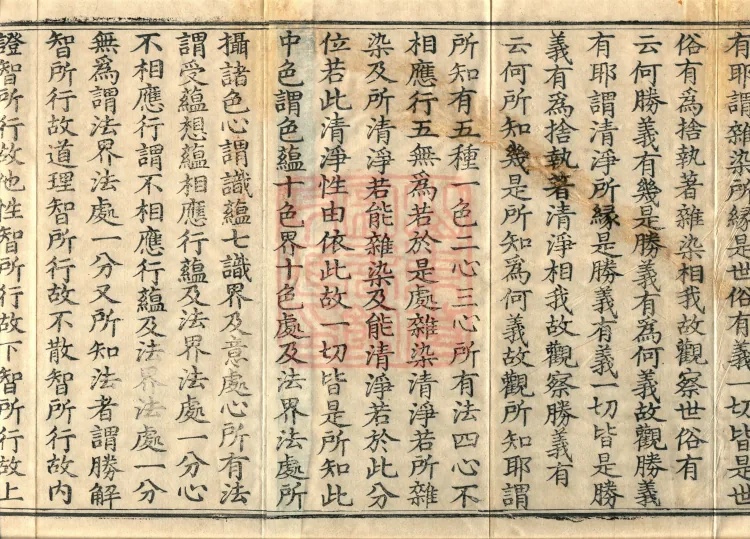 有耶謂雜染所緣是世俗有義一切皆是世
俗有爲捨執著雜染相我故觀察世俗有
云何勝義有幾是勝義有爲何義故觀勝義
有耶謂清淨所緣是勝義有義一切皆是勝
義有爲捨執著清淨相我故觀察勝義有
云何所知幾是所知爲何義故觀所知耶謂
所知有五種一色二心三心所有法四心不
相應行五無爲若於是處雜染清淨若所雜
染及所清淨若能雜染及能清淨若於此分
位若此清淨性由依此故一切皆是所知此
中色謂色蘊十色界十色處及法界法處所
攝諸色心謂識蘊七識界及意處心所有法
謂受蘊想蘊相應行蘊及法界法處一分心
不相應行謂不相應行蘊及法界法處一分
無爲謂法界法處一分又所知法者謂勝解
智所行故道理智所行故不散智所行故內
證智所行故他性智所行故下智所行故上